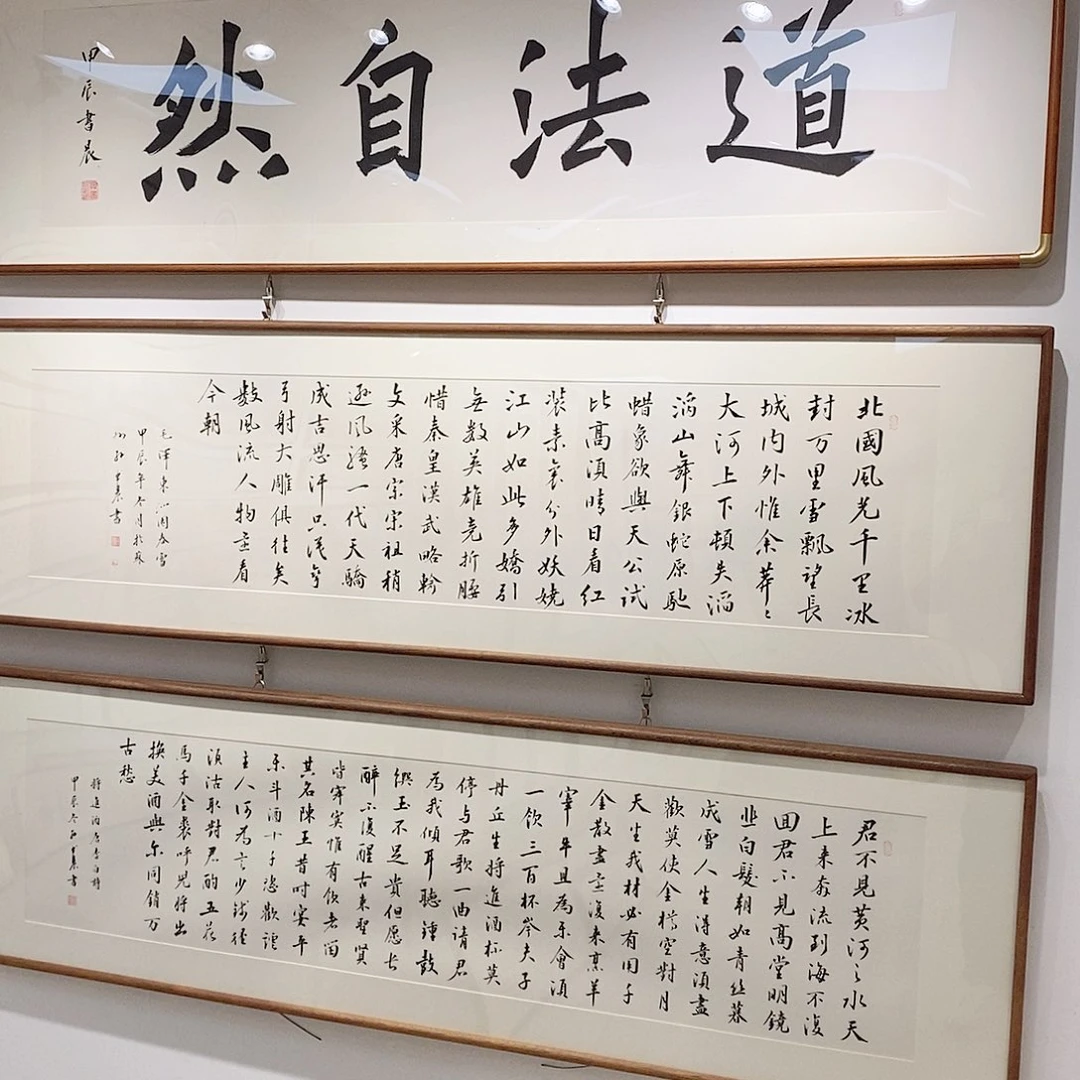 道法自然
甲辰書晨
北國風光千里冰
封万里雪飄望長
城内外惟余莽〻
大河上下頓失滔
滔山舞銀蛇原馳
蜡象欲與天公試
比高須晴日看紅
装素裹分外妖嬈
江山如此多嬌引
無數英雄竞折腰
惜秦皇漢武略輸
文采唐宗宋祖稍
遜風騷一代天驕
成吉思汗只识弯
弓射大雕俱往矣
數風流人物还看
今朝
毛澤東沁園春雪
甲辰年冬月於蘇
州孙書
君不見黄河之水天
上来奔流到海不復
回君不見高堂明鏡
悲白髮朝如青丝暮
成雪人生得意須盡
歡莫使金樽空對月
天生我材必有用千
金散盡还復来烹羊
宰牛且為乐會須
一飲三百杯岑夫子
丹丘生將進酒杯莫
停与君歌一曲請君
為我傾耳聽鐘鼓
饌玉不足貴但愿长
醉不復醒古来聖賢
皆寂寞惟有飲者留
其名陳王昔时宴平
乐斗酒十千恣歡謔
主人何為言少錢径
須沽取對君酌五花
馬千金裘呼兒將出
换美酒與尔同銷万
古愁
將進酒唐李白詩
甲辰冬孙書